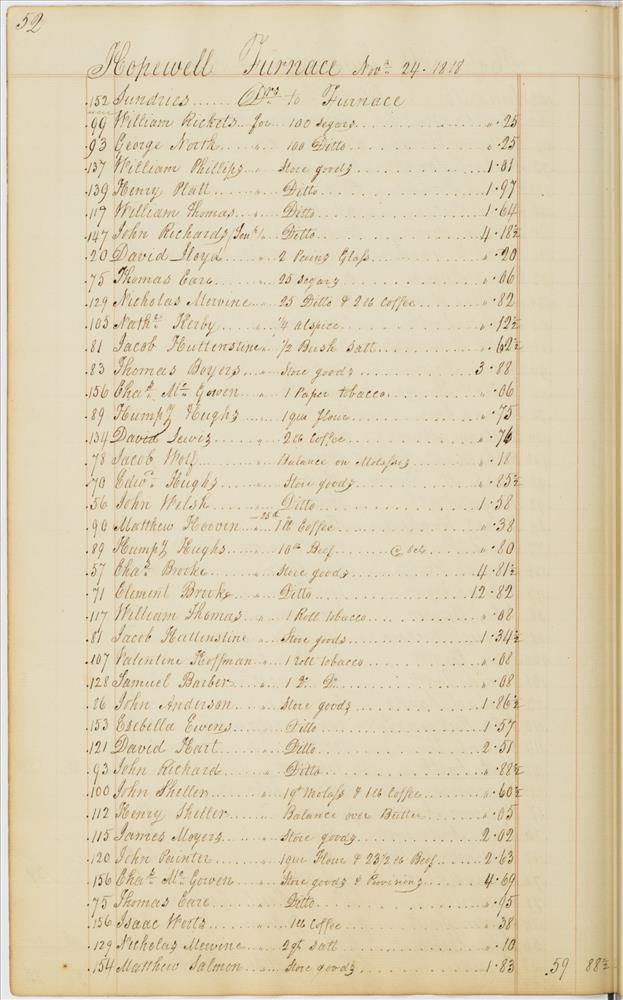 52
Hopewell Furnace Novr. 24. 1818
152 Sundries ...... Drs to Furnace
99 William Rickets... for ... 100 Segars ... " .25
93 George North ... " 100 Ditto ... " .25
137 William Phillips ... " Store goods ... 1.01
139 Henry Platt ... " Ditto ... 1.97
117 William Thomas ... " Ditto ... 1.64
147 John Richards (Senr) ... Ditto ... 4.18½
20 David Lloyd ... " 2 Pains Glass ... " .20
75 Thomas Care ... " 25 Segars ... " .06
129 Nicholas Mervine " 25 Ditto & 2 lb Coffee ... " .82
105 Nathl. Kerby ... " ¼ alspice ... " .12½
81 Jacob Huttenstine " ½ Bush Salt ... " .62½
83 Thomas Boyers ... " Store goods ... 3.88
156 Chas. Mc Gowen ... " 1 Paper tobacco ... " .06
89 Humpy Hughs ... " 1 qur flour ... " .75
134 David Lewis ... " 2 lb Coffee ... " .76
78 Jacob Wolf ... " Balance on Molasses ... " .18
70 Edwd. Hughs ... " Store goods ... " .85½
56 John Welsh ... " Ditto ... 1.58
90 Matthew Hoovin — 25th — 1 lb Coffee ... " .38
89 Humpy Hughs ... " 10 lb Beef ... @ 8cts ... " .80
57 Chas. Brooke ... " Store goods ... 4.81½
71 Clement Brooke " Ditto ... 12.82
117 William Thomas " 1 Roll tobacco ... " .08
81 Jacob Huttenstine " Store goods ... 1.34½
107 Valentine Hoffman " 1 roll tobacco ... " .08
128 Samuel Barber ... " 1 Do. Do. ... " .08
86 John Anderson ... " Store goods ... 1.86½
153 Esebella Ewens ... " Ditto ... 1.57
121 David Hart ... " Ditto ... 2.51
93 John Richard ... " Ditto ... " .88½
100 John Sheller ... " 1 qt Molass & 1 lb Coffee ... " .60½
112 Henry Sheller ... " Balance over Butter ... " .05
115 James Moyers ... " Store goods ... 2.02
120 John Painter ... " 1 qur Flour & 23½ lb Beef ... 2.63
156 Chas. Mc Gowen ... " Store goods & Provisions ... 4.69
75 Thomas Care ... " Ditto ... " .95
136 Isaac Worts ... " 1 lb Coffee ... " .38
129 Nicholas Mewine " 2 qt Salt ... " .10
154 Matthew Salmon ... " Store goods ... 1.83 59 88½